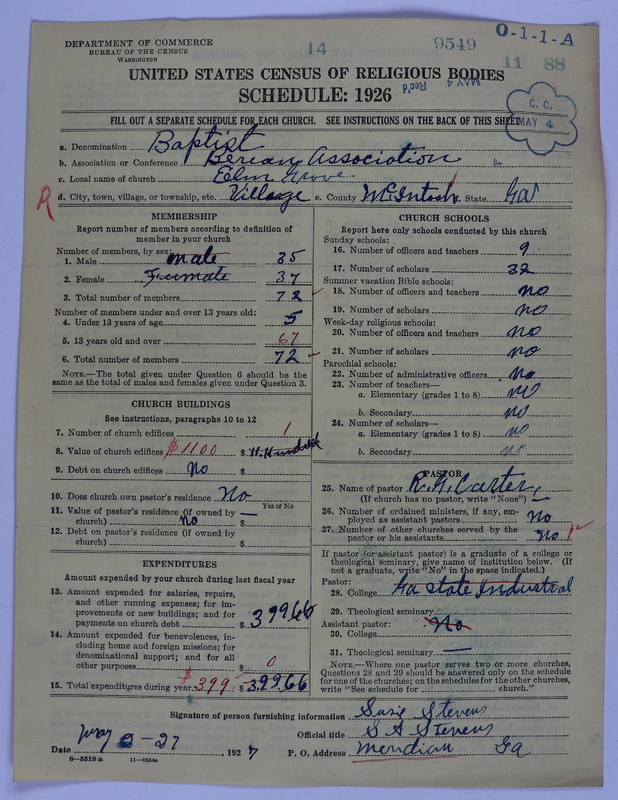 DEPARTMENT OF COMMERCE
BUREAU OF THE CENSUS
WASHINGTON
14
9549
O-1-1-A
11 88
UNITED STATES CENSUS OF RELIGIOUS BODIES
Rec'd MAY 4
SCHEDULE: 1926
C. C.
MAY 4
FILL OUT A SEPARATE SCHEDULE FOR EACH CHURCH. SEE INSTRUCTIONS ON THE BACK OF THIS SHEET
a. Denomination Baptist
b. Association or Conference Berean Association
c. Local name of church Elm Grove
R d. City, town, village, or township, etc. Village e. County McIntosh, State Ga
MEMBERSHIP
Report number of members according to definition of
member in your church
Number of members, by sex:
1. Male male 35
2. Female 37
3. Total number of members 72
Number of members under and over 13 years old:
4. Under 13 years of age 5
5. 13 years old and over 67
6. Total number of members 72
NOTE.—The total given under Question 6 should be
the same as the total of males and females given under Question 3.
CHURCH BUILDINGS
See instructions, paragraphs 10 to 12
7. Number of church edifices 1
8. Value of church edifices $1100 $ 11. Hundred
9. Debt on church edifices No $
10. Does church own pastor's residence No
Yes or No
11. Value of pastor's residence (if owned by
church) no $ —
12. Debt on pastor's residence (if owned by
church) $
EXPENDITURES
Amount expended by your church during last fiscal year
13. Amount expended for salaries, repairs,
and other running expenses; for im-
provements or new buildings; and for
payments on church debt $ 399 66
14. Amount expended for benevolences, in-
cluding home and foreign missions; for
denominational support; and for all
other purposes $ 0
15. Total expenditures during year $399 $ 399 66
CHURCH SCHOOLS
Report here only schools conducted by this church
Sunday schools:
16. Number of officers and teachers 9
17. Number of scholars 32
Summer vacation Bible schools:
18. Number of officers and teachers no
19. Number of scholars no
Week-day religious schools:
20. Number of officers and teachers no
21. Number of scholars no
Parochial schools:
22. Number of administrative officers no
23. Number of teachers—
a. Elementary (grades 1 to 8) no
b. Secondary no
24. Number of scholars—
a. Elementary (grades 1 to 8) no
b. Secondary no
PASTOR
25. Name of pastor Carter
(If church has no pastor, write "None")
26. Number of ordained ministers, if any, em-
ployed as assistant pastors No
27. Number of other churches served by the
pastor or his assistants No
If pastor (or assistant pastor) is a graduate of a college or
theological seminary, give name of institution below. (If
not a graduate, write "No" in the space indicated.)
Pastor:
28. College Ga State Industrial
29. Theological seminary
Assistant pastor: No
30. College
31. Theological seminary —
NOTE.—Where one pastor serves two or more churches,
Questions 28 and 29 should be answered only on the schedule
for one of the churches; on the schedules for the other churches,
write "See schedule for church."
Signature of person furnishing information Susie Stevens
Official title S A Stevens
Date May 2-27, 1927 P. O. Address Meridian Ga
8—5518 a 11—9554a